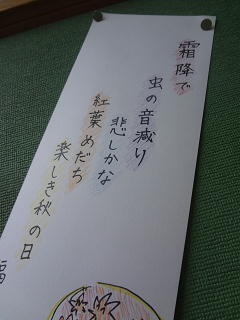 霜降で
虫の音減り
悲しかな
紅葉めだち
楽しき秋の日
福